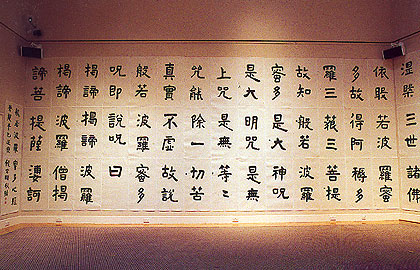 涅槃三世諸佛
依般若波羅蜜
多故得阿耨多
羅三藐三菩提
故知般若波羅
蜜多是大神咒
是大明咒是無
上咒是無等等
咒能除一切苦
真實不虛故說
般若波羅蜜多
呪即說呪曰
揭諦揭諦波羅
揭諦波羅僧揭
諦菩提薩婆訶
般若波羅蜜多心經